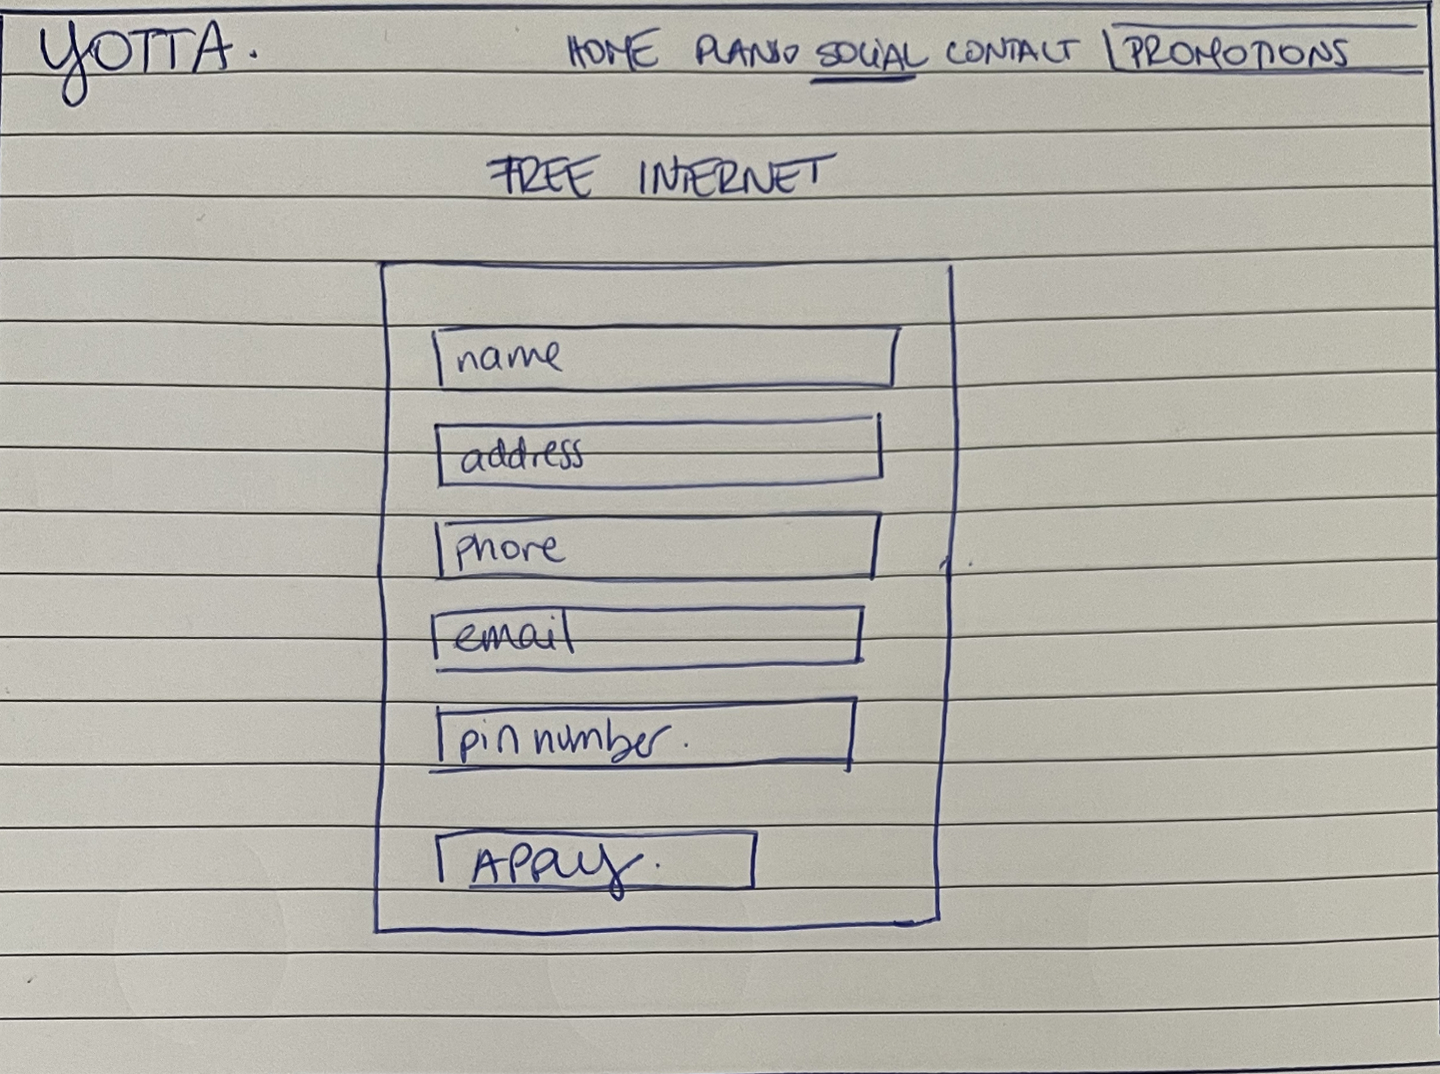 YOTTA.
HOME PLANS SOCIAL CONTACT PROMOTIONS
FREE INTERNET
name
address
phone
email
pin number.
APPLY.